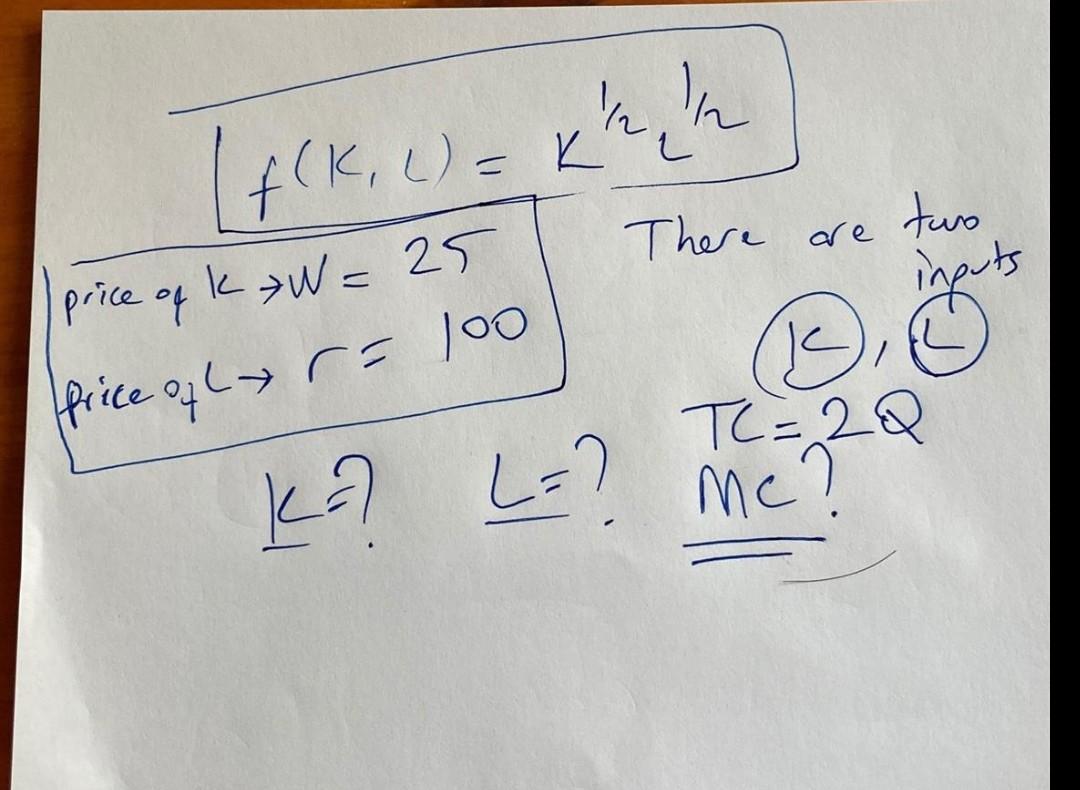 f(K, L) = K^1/2 L^1/2
price of K → W = 25
price of L → r = 100
There are two
inputs
K, L
TC = 2Q
K=? L=? MC?